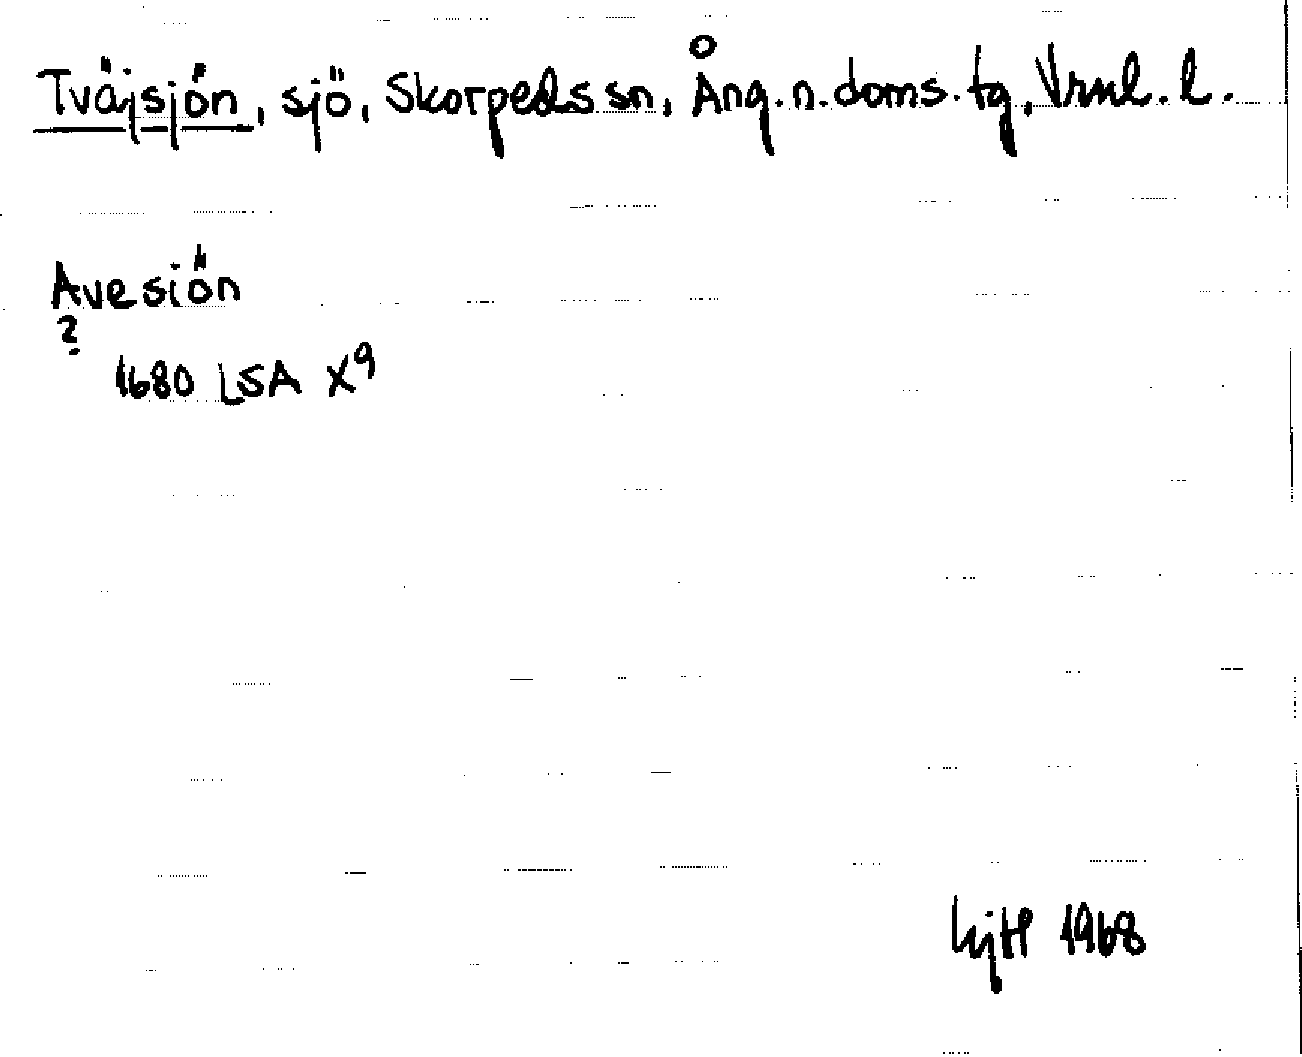 Tväjsjön, sjö, Skorpeds sn, Ång. n. doms. tg, Vrnl. l.
Avesiön
?
1680 LSA X9
1968